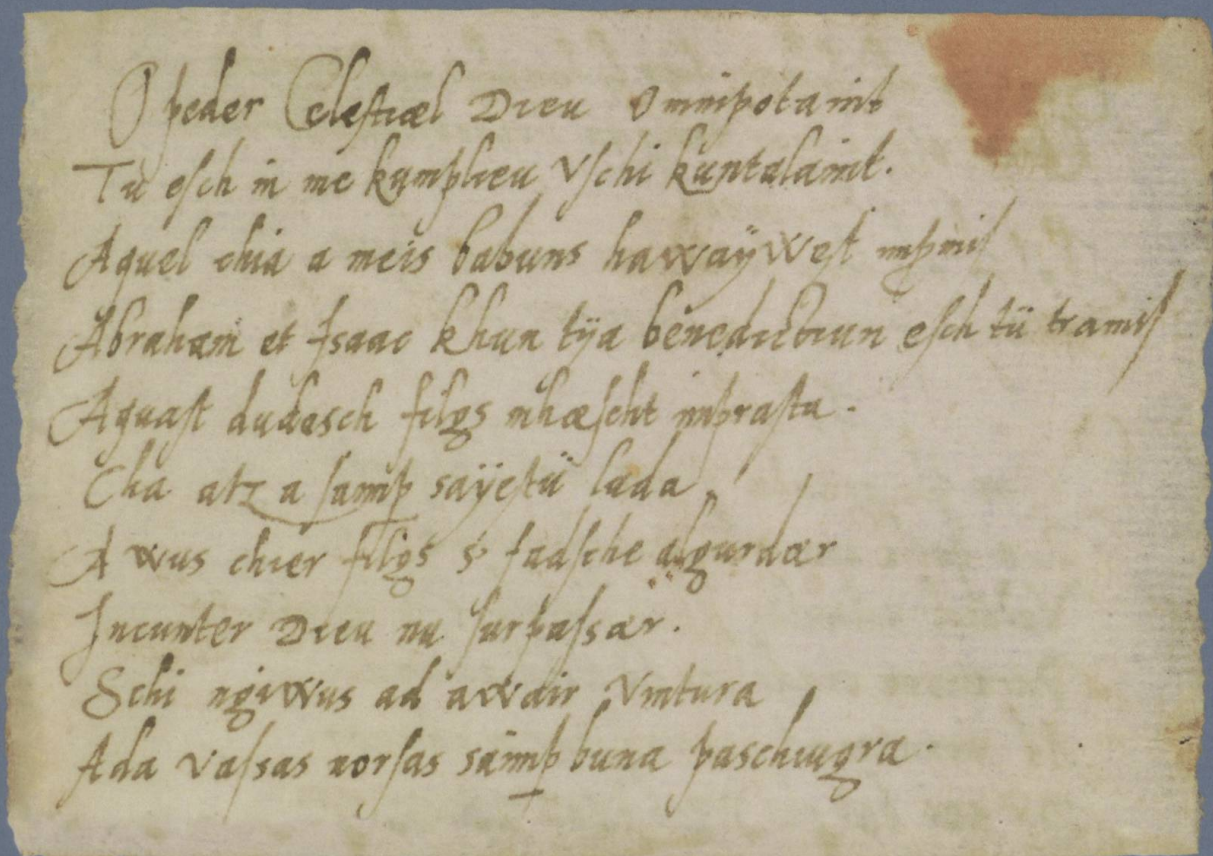 O peder Celestiæl Dieu Omnipotaint
Tu esch in me kumplieu Vschi kuntalaint.
Aquel chia a meis babuns hawaÿwest impmis
Abraham et Isaac khun tÿa benedictiun esch tü tramis
Aquast dudesch filgs mhæscht imprasta.
Cha atz a samp saÿestü lada
A wus chier filgs s' fadsche algurdær
Incunter Dieu nu surpassær.
Schi ngiwus ad awair Vintura
Ada vassas norsas sämp buna paschiugra.